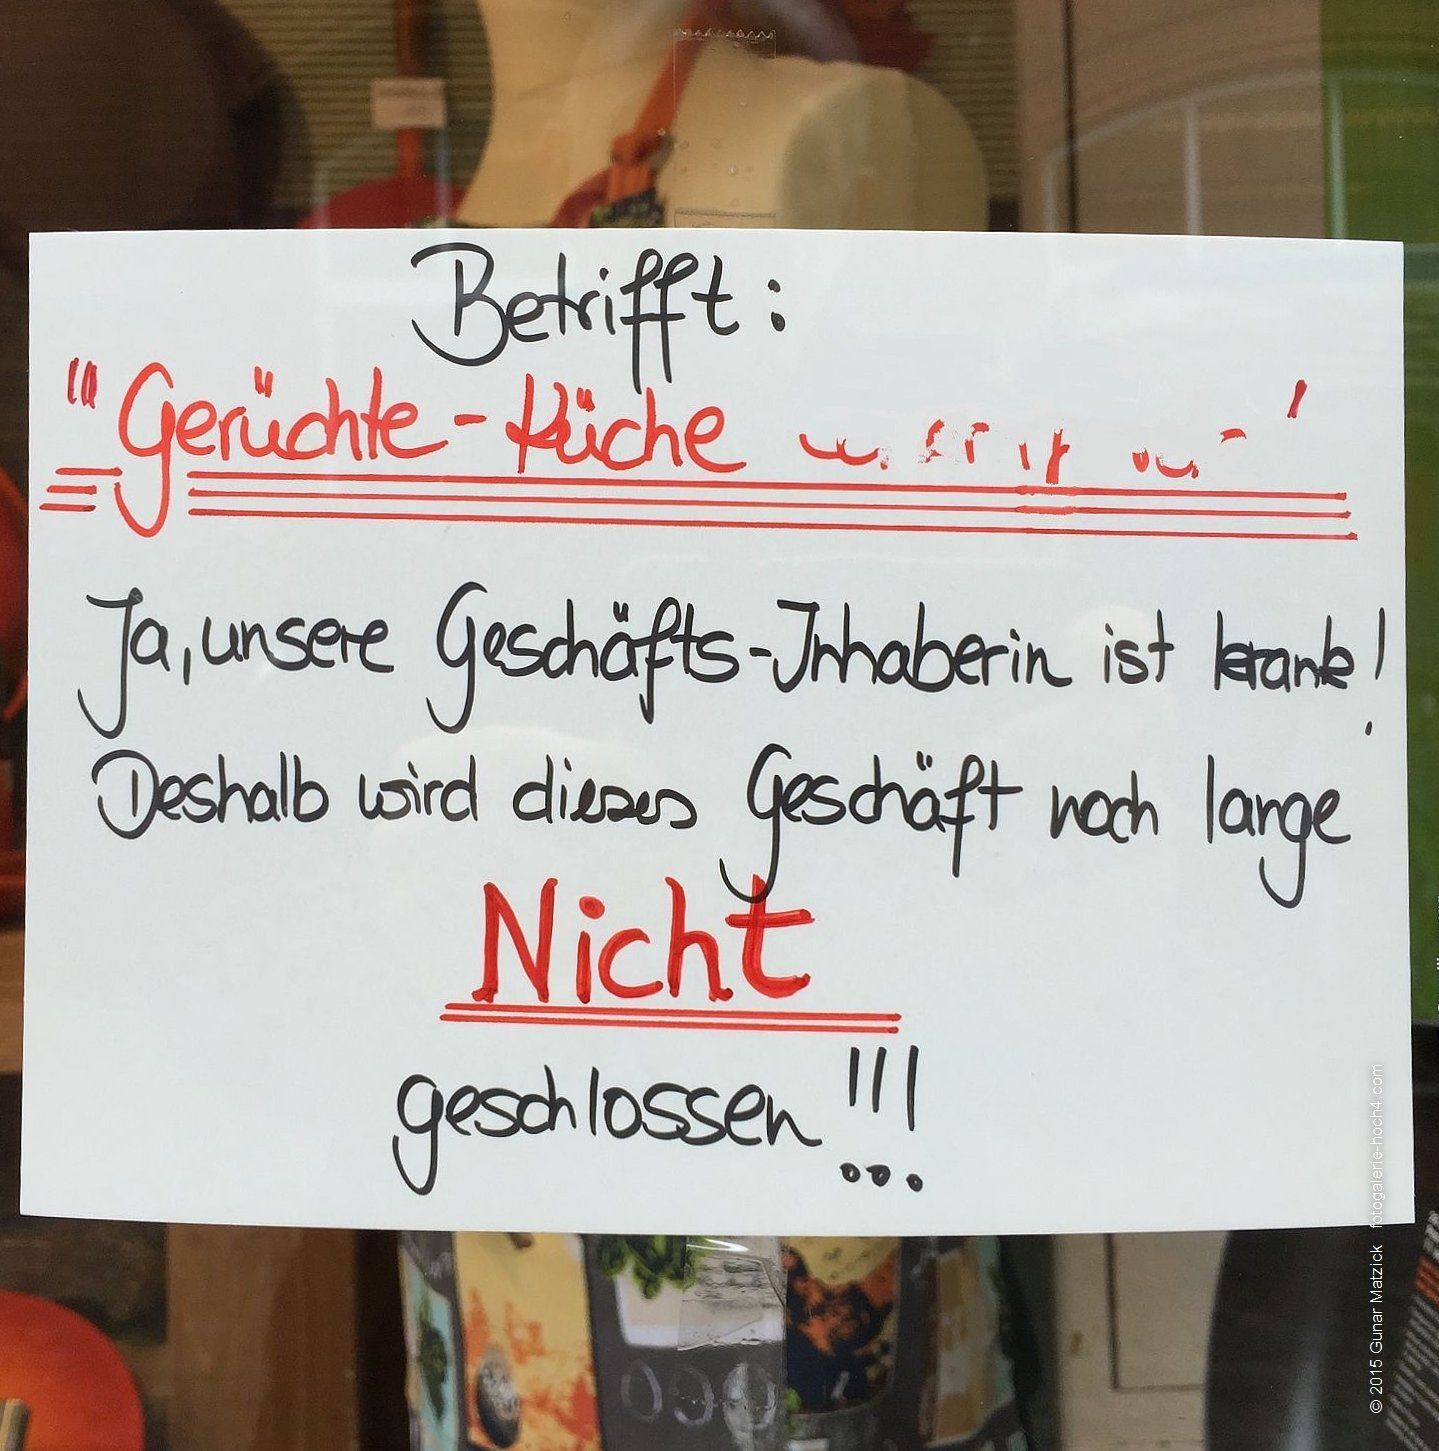 Betrifft:
"Gerüchte-Küche
Ja, unsere Geschäfts-Inhaberin ist krank!
Deshalb wird dieses Geschäft noch lange
Nicht
geschlossen!!!
© 2015 Gunar Matzick fotogalerie-hoch4.com